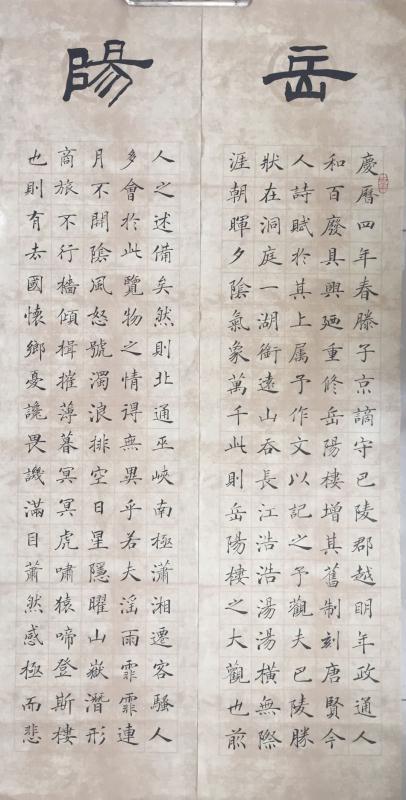 岳
慶曆四年春滕子京謫守巴陵郡越明年政通人
和百廢具興廼重修岳陽樓增其舊制刻唐賢今
人詩賦於其上属予作文以記之予觀夫巴陵勝
狀在洞庭一湖銜遠山吞長江浩浩湯湯橫無際
涯朝暉夕陰氣象萬千此則岳陽樓之大觀也前
陽
人之述備矣然則北通巫峽南極瀟湘遷客騷人
多會於此覽物之情得無異乎若夫淫雨霏霏連
月不開陰風怒號濁浪排空日星隱曜山嶽潛形
商旅不行檣傾楫摧薄暮冥冥虎嘯猿啼登斯樓
也則有去國懷鄉憂讒畏譏滿目蕭然感極而悲